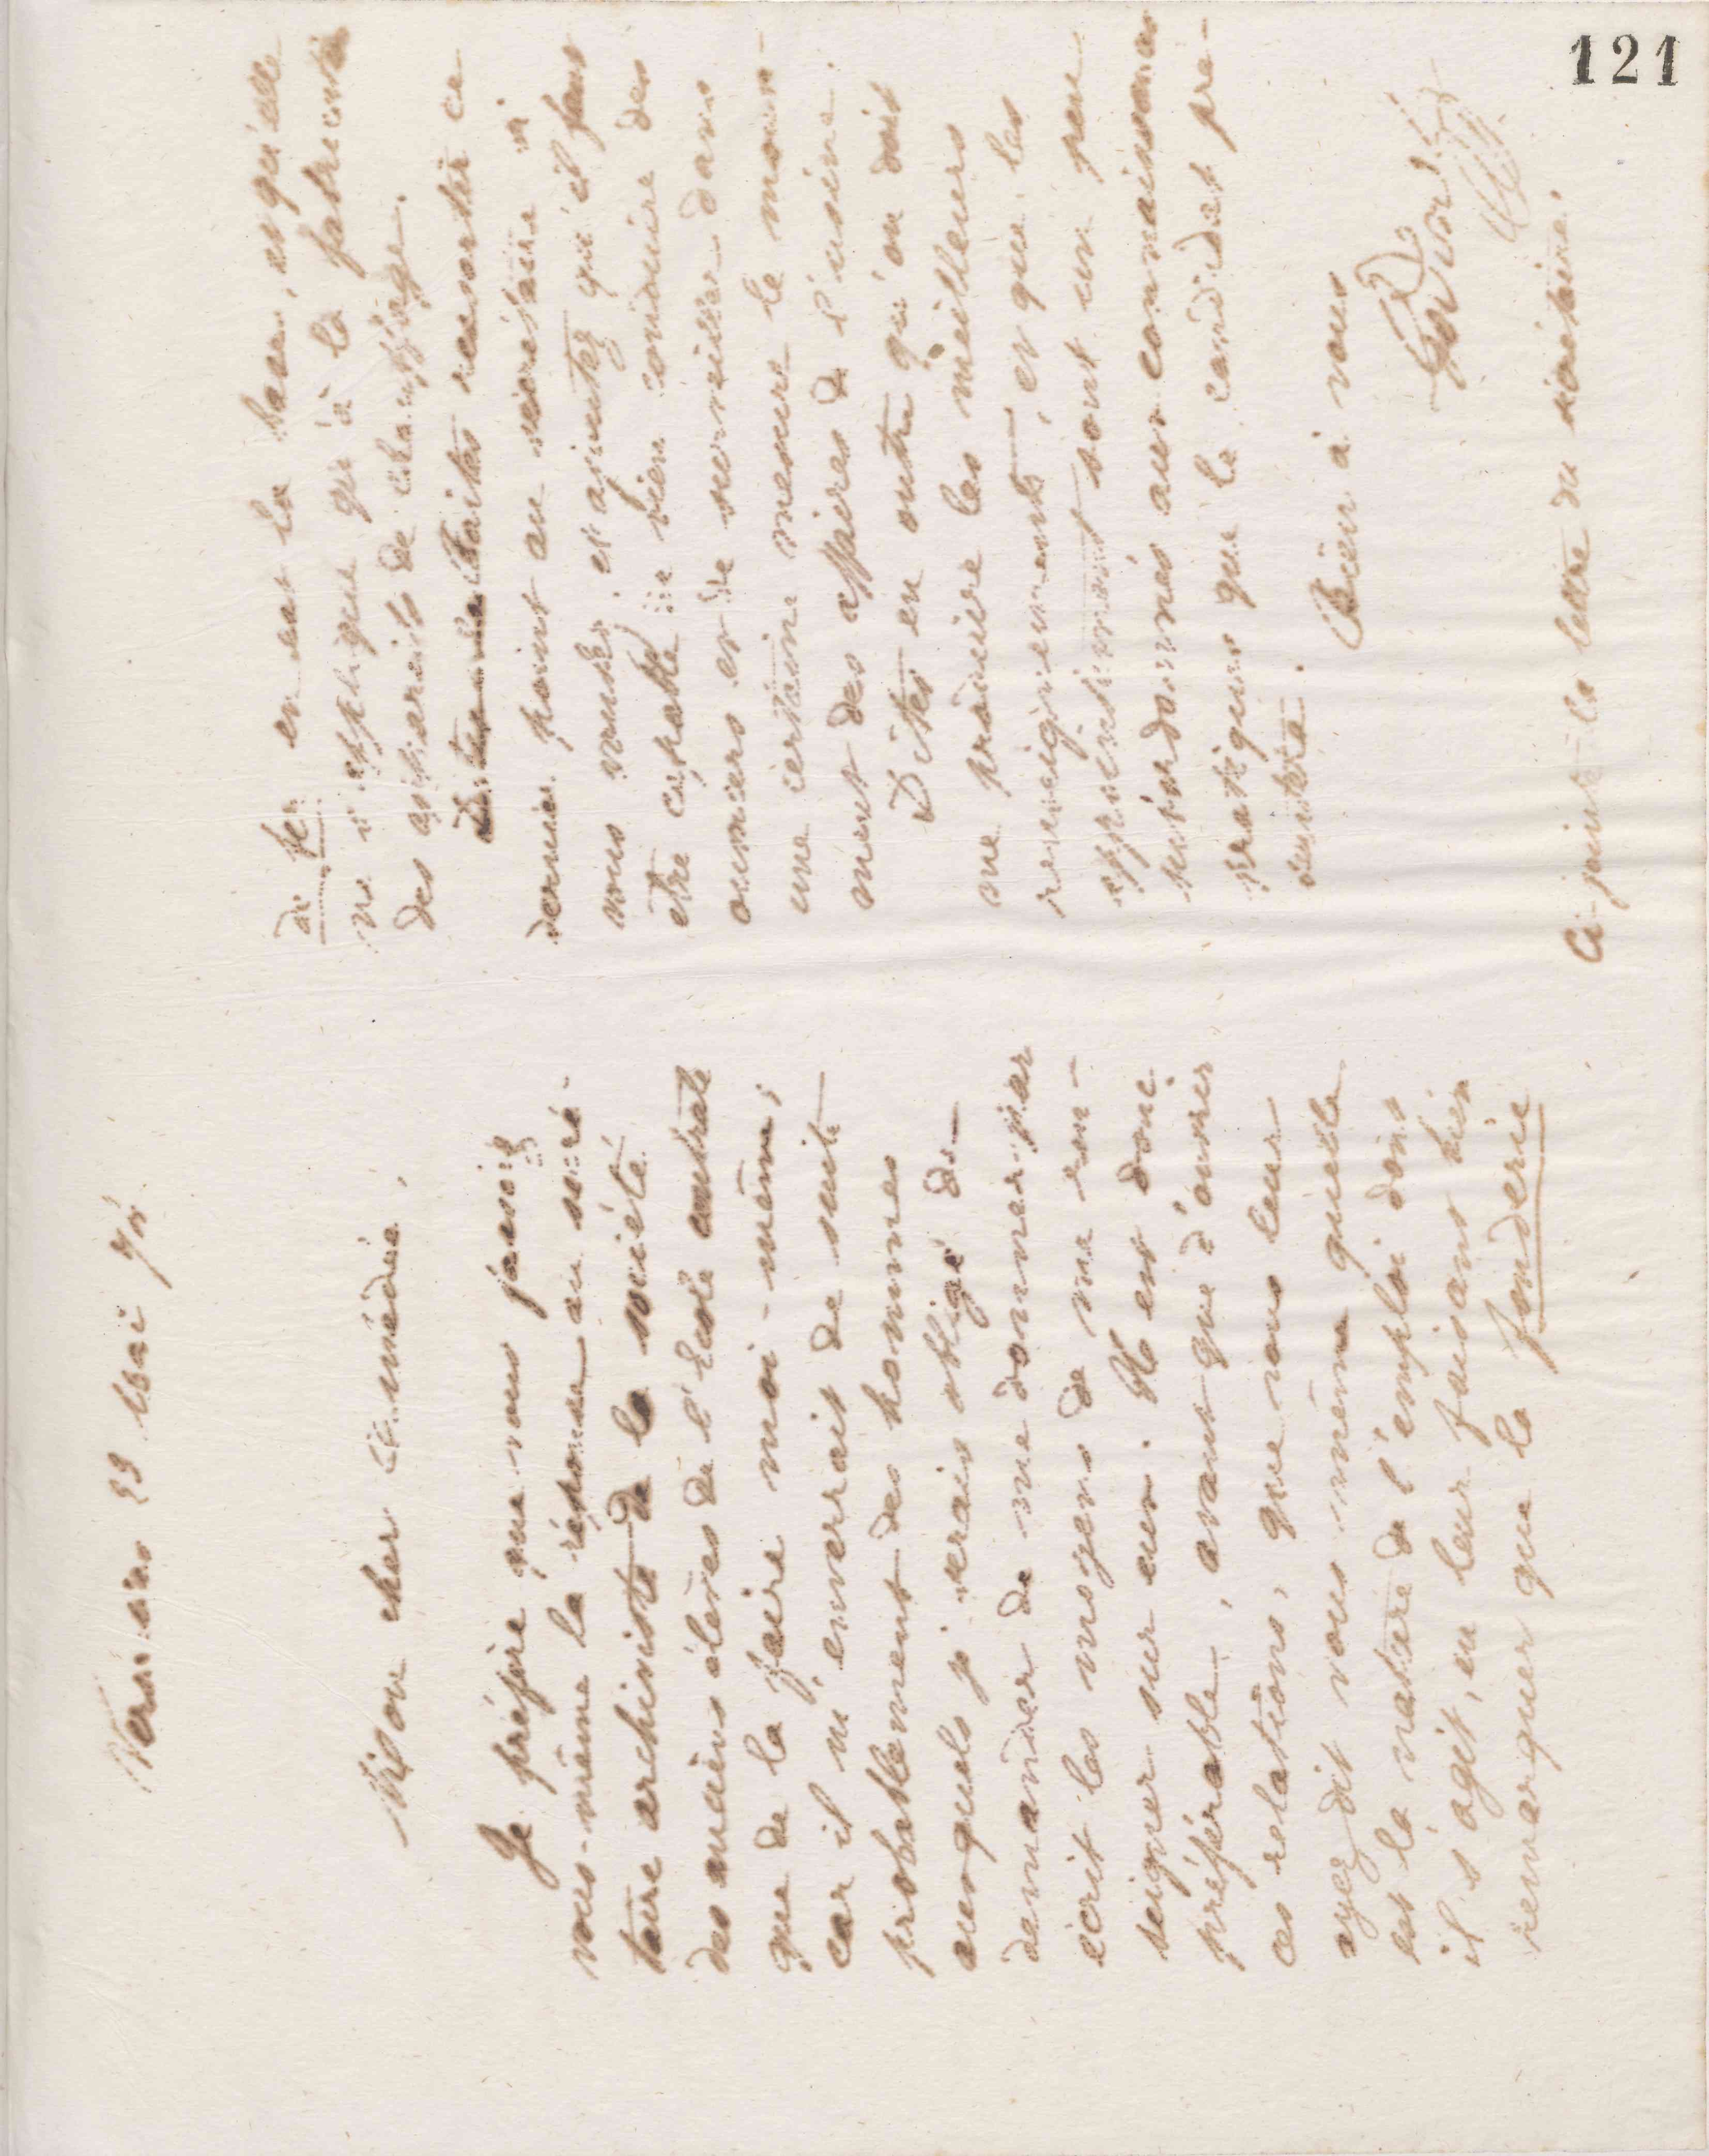 121
Versailles 23 Mai 72
Mon cher Amédée,
Je préfère que vous fassiez
vous-même la réponse au secré-
taire archiviste de la société
des anciens élèves de l'Ecole centrale
que de la faire moi-même;
car il m'enverrait de suite
probablement des hommes
auxquels je serais obligé de
demander de me donner par
écrit les moyens de me ren-
seigner sur eux. Il est donc
préférable, avant que d'ouvrir
ces relations, que vous leur
ayez dit vous même quelle
est la nature de l'emploi dont
il s'agit, en leur faisant bien
remarquer que la fonderie
de fer en est la base, et qu'elle
ne s'applique qu'à la fabricat
des appareils de chauffage.
Dites cela Faites ressortir ce
dernier point au secrétaire si
vous voulez, et ajoutez qu'il faut
être capable de bien conduire des
ouvriers et de surveiller dans
une certaine mesure le mouve-
ment des affaires de l'usine.
Dites en outre qu'on doit
me produire les meilleurs
renseignements, et que les
appointements sont un peu
subordonnés aux connaissances
pratiques que le candidat pré-
sentera.
Bien à vous
Godin
Ci-joint la lettre du secrétaire.